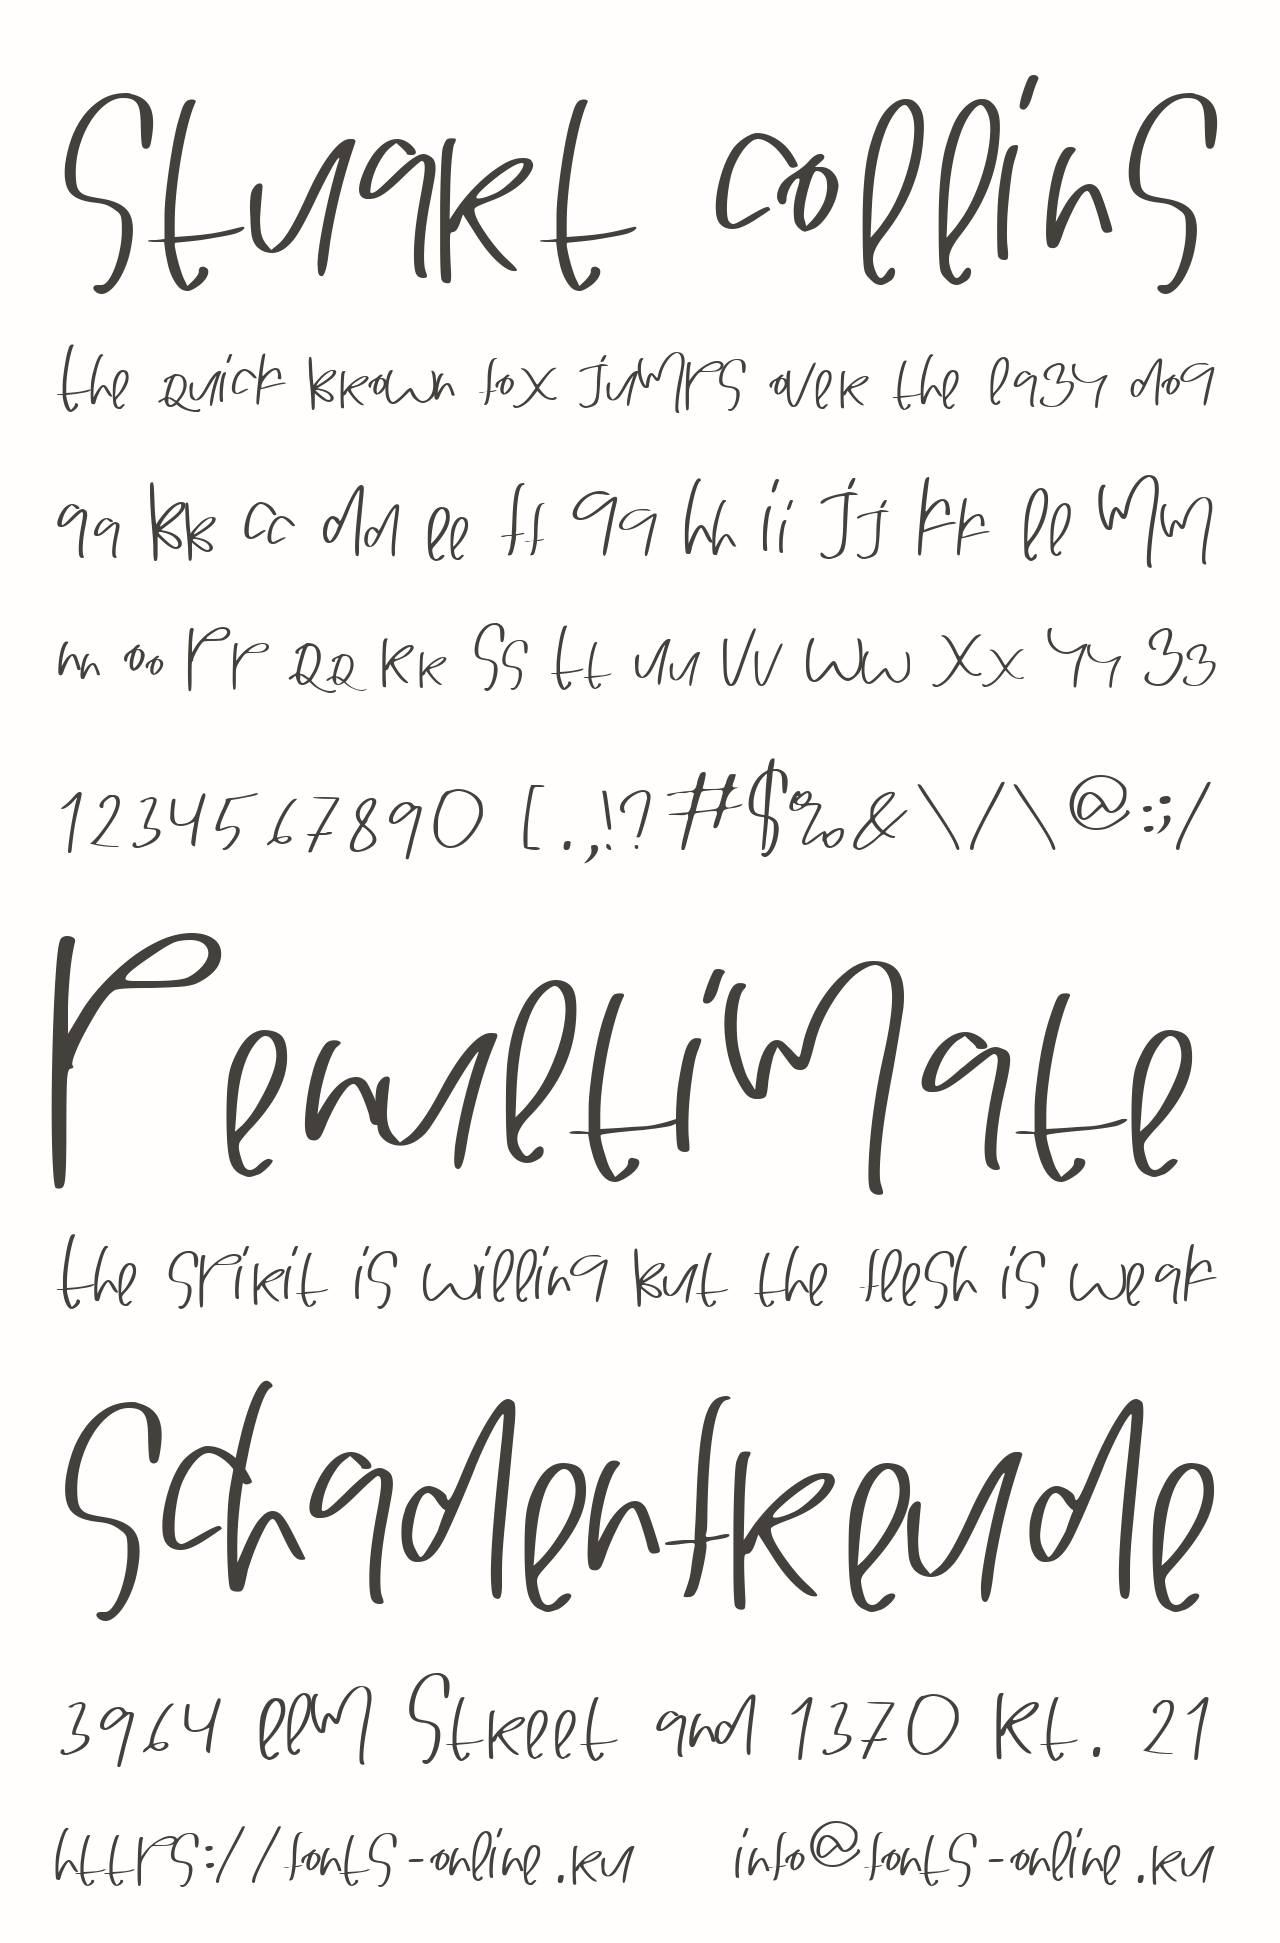 Stuart Collins
the quick brown fox jumps over the lazy dog
Aa Bb Cc Dd Ee Ff Gg Hh Ii Jj Kk Ll Mm
Nn Oo Pp Qq Rr Ss Tt Uu Vv Ww Xx Yy Zz
1234567890 [.,!?#$%&\/\@:;/
Penultimate
the spirit is willing but the flesh is weak
Schadenfreude
3964 Elm Street and 1370 Rt. 21
https://fonts-online.ru info@fonts-online.ru